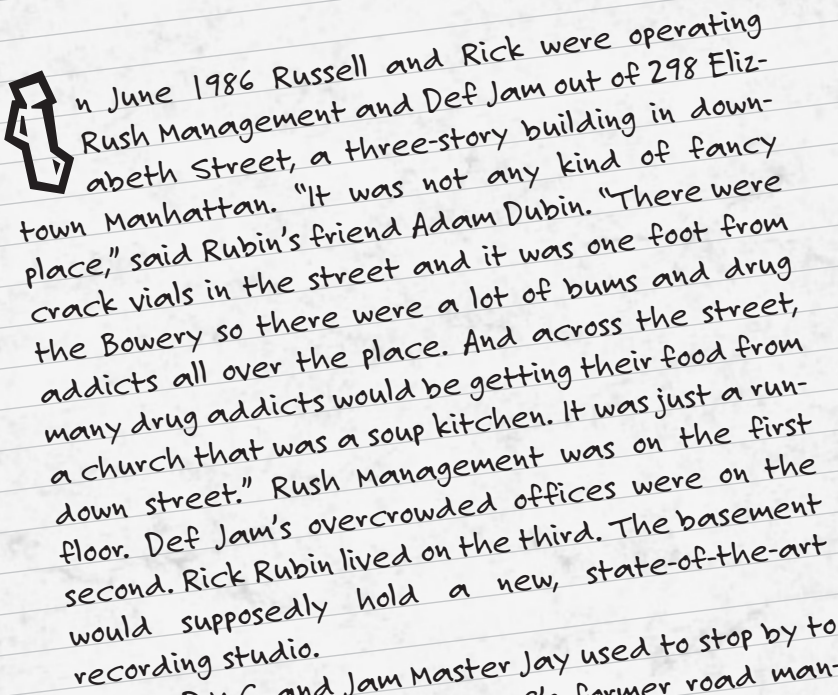 In June 1986 Russell and Rick were operating
Rush Management and Def Jam out of 298 Eliz-
abeth Street, a three-story building in down-
town Manhattan. “It was not any kind of fancy
place,” said Rubin’s friend Adam Dubin. “There were
crack vials in the street and it was one foot from
the Bowery so there were a lot of bums and drug
addicts all over the place. And across the street,
many drug addicts would be getting their food from
a church that was a soup kitchen. It was just a run-
down street.” Rush Management was on the first
floor. Def Jam’s overcrowded offices were on the
second. Rick Rubin lived on the third. The basement
would supposedly hold a new, state-of-the-art
recording studio.
and Jam Master Jay used to stop by to
former road man-